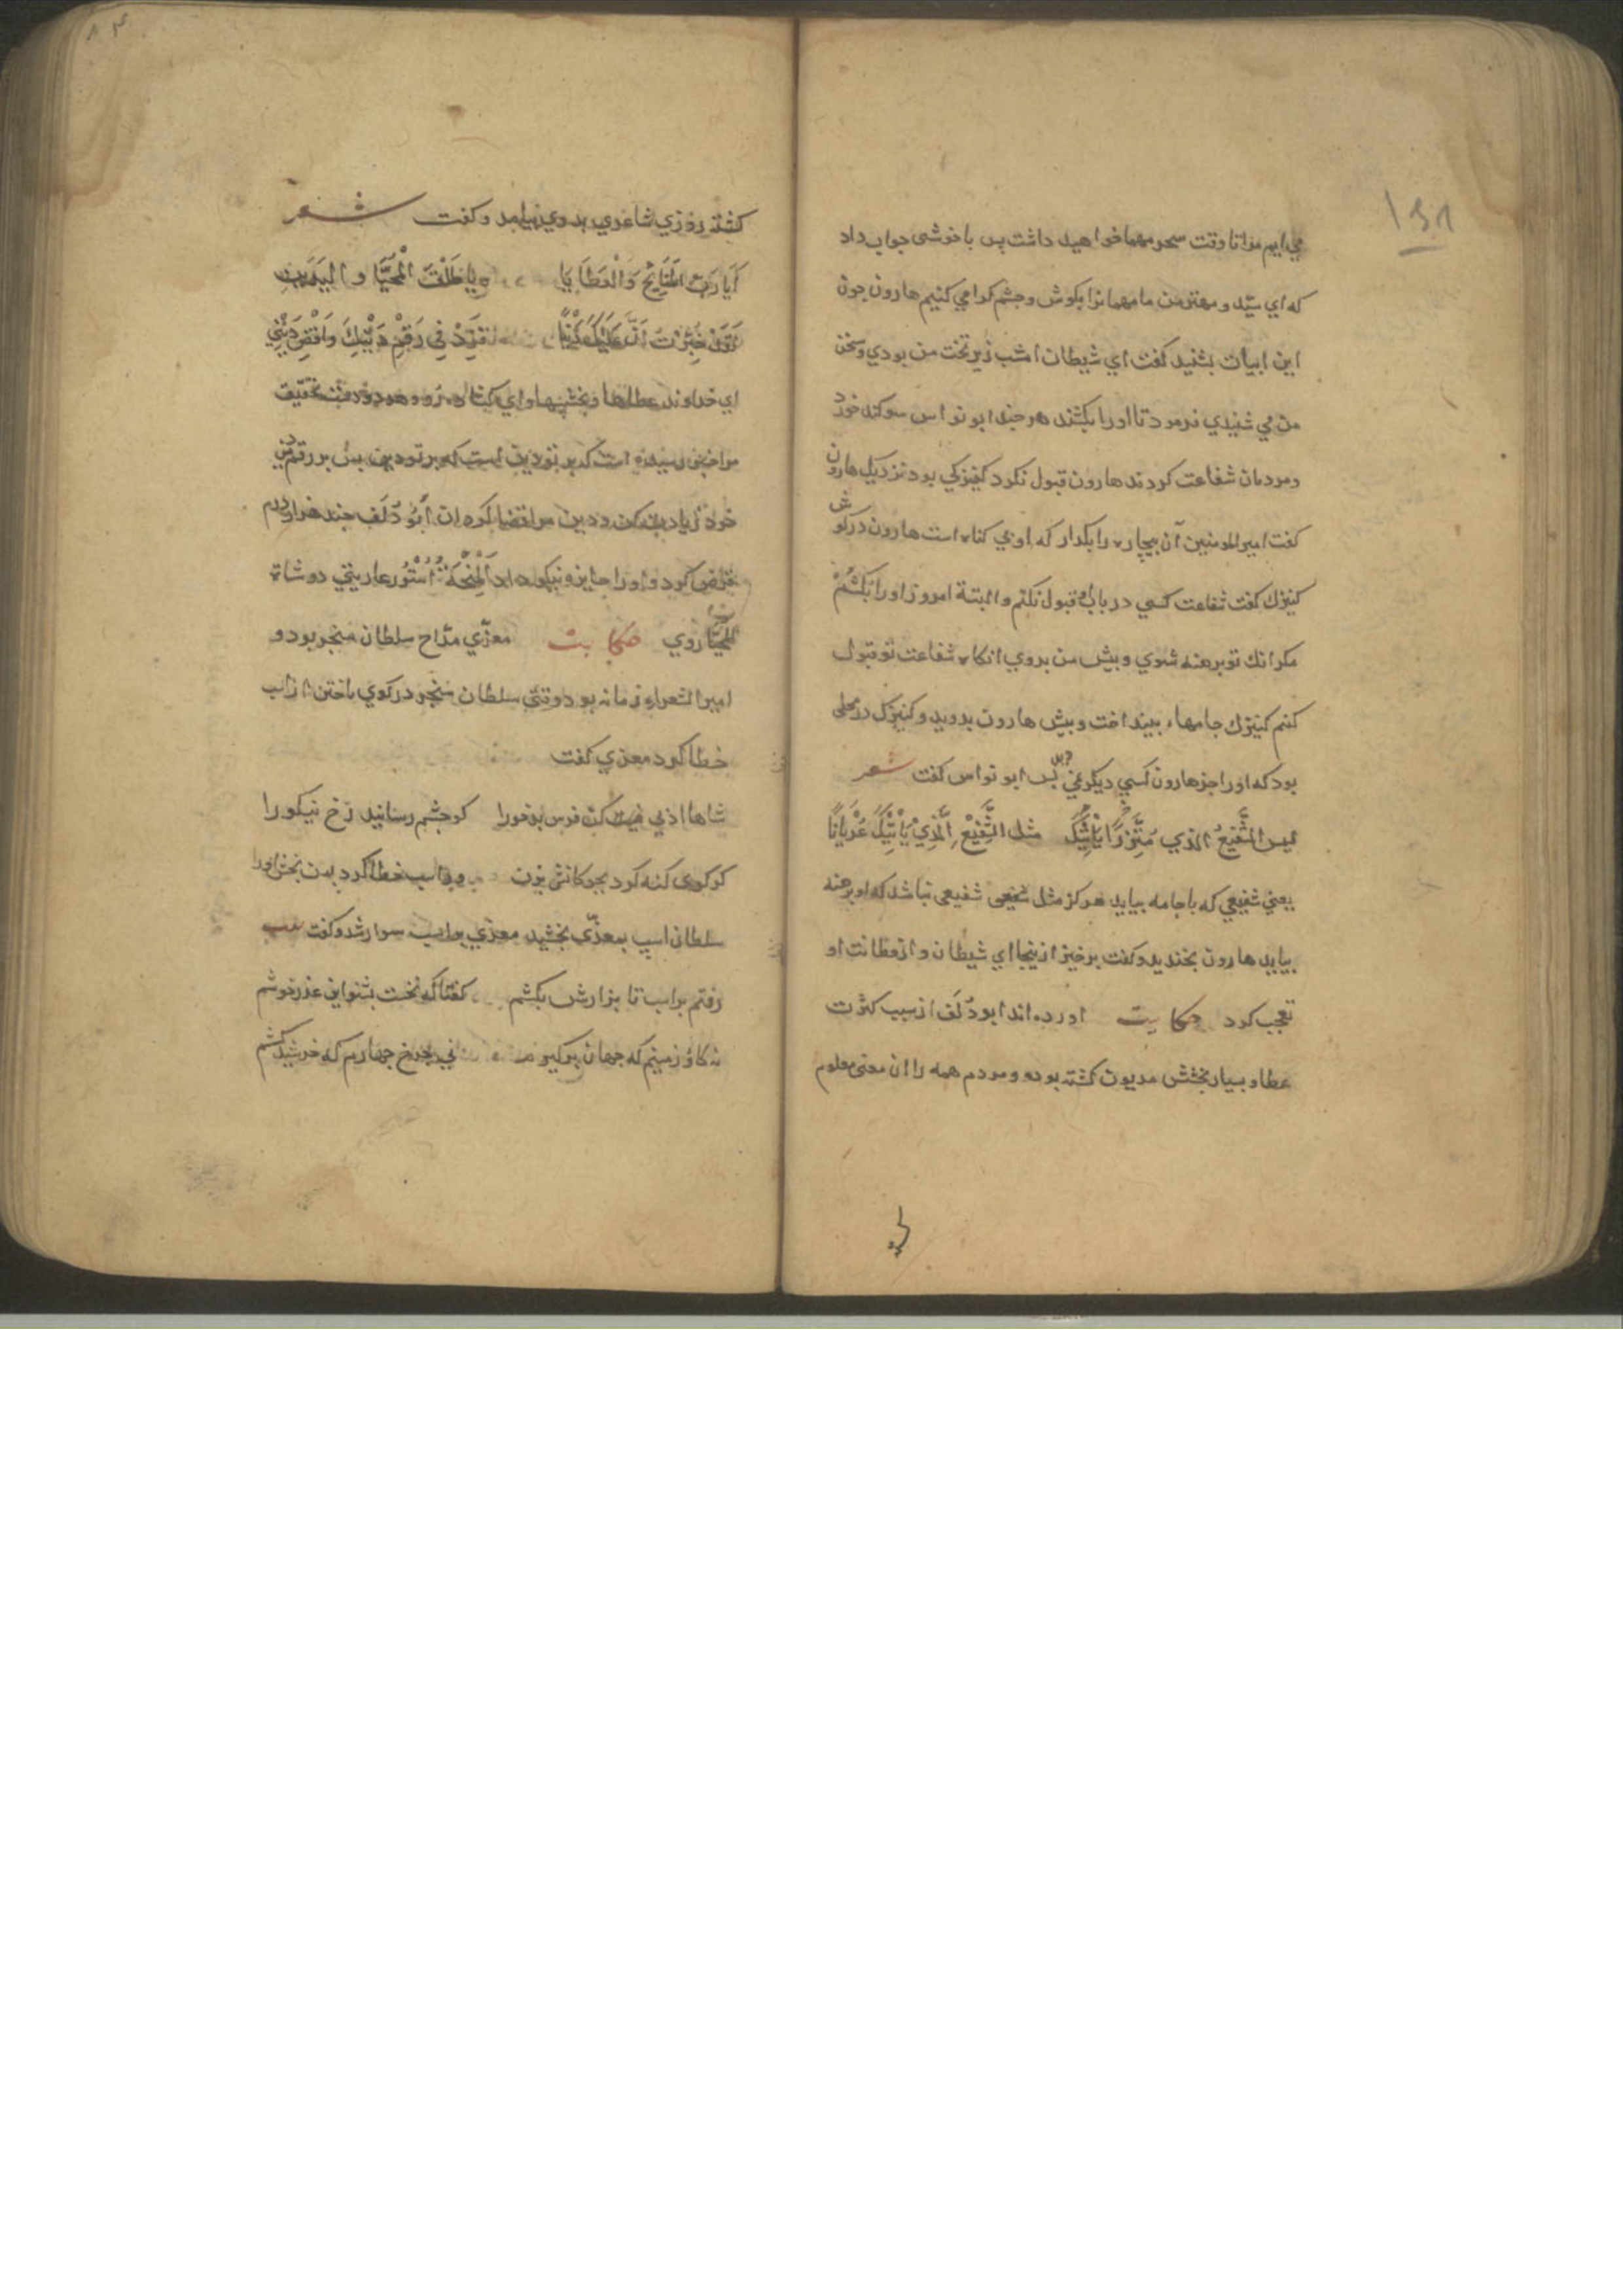 می ایم مر اتا وقت سحر مهما خواهید داشت پس با خوشی جواب داد
که ای سیّد و مهتر من ما مهمانرا بکوش و جشم کرامی کنیم هارون جون
این ابیات بشنید کفت ای شیطان امشب زیر تخت من بودی و سخن
من می شنیدی فرمود تا اورا بکشند هر جند ابو نواس سوکند خورد
و مردمان شفاعت کردند هارون قبول نکرد کنیزکی بود نزدیک هارون
کفت امیر المومنین آن بیچاره را بکذار که او بی کناه است هارون در کوش
کنیزك کفت شفاعت کسی در باب او قبول نکنم و البتة امروز اورا بکشم
مکر انك تو برهنه شوی و بیش من بروی انکاه شفاعت تو قبول
کنم کنیزك جامهاء بینداخت و بیش هارون بدوید و کنیزك در محلی
بود که اورا جز هارون کسی دیکر نمی بس ابو نواس کفت شعر
لیس الشَّفِیعُ الذی مُتَّزِرًا یَأْتِیكَ مثل الشَّفِیْعِ الَّذِیْ یَأْتِیْكَ عُرْیَانًا
یعنی شفیعی که با جامه بیاید هرکز مثل شفیعی نباشد که او برهنه
بیاید هارون بخندید و کفت برخیز ازینجا ای شیطان و از فطانت او
تعجب کرد حکایت اورده اند ابو دُلَف از سبب کثرت
عطا و بسیار بخشش مدیون کشته بود و مردم همه را ان معنی معلوم
کشته روزی شاعری بدوی بیامد و کفت شعر
أَیَا رَبَّ الْمَنَایِحِ وَالْعَطَایَا وَیَا طَلْقَ الْمُحَیَّا و الیَدَیْنِ
لَقَدْ خُبِّرْتُ أَنَّ عَلَیْكَ دَیْنًا فَزِدْ فِی رَقْمِ دَیْنِكَ وَاقْضِ دَیْنِی
ای خداوند عطاها و بخششها و ای کشاده رو و هر دو دست بتحقیق
مرا خبر رسیده است که بر تو دین است بس بر رقم دین
خود زیادت کن و دین مرا قضا کن ان أَبُو دُلَف جند هزار درم
قرض کرد و اورا جایزه نیکو داد اَلْمِنْحَةُ اُشْتُر عاریتی دوشا
اَلْمُحَیَّا روی حکایت معزّی مدّاح سلطان سنجر بود و
امیر الشعراء زمانه بود وقتی سلطان سنجر در کوی باختن از اسب
خطا کرد معزی کفت
شاها ادبی کن فرس بدخورا کو جشم رسانید رخ نیکورا
کر کوی کنه کرد بجوکانش بزن ور اسب خطا کرد بمن بخش اورا
سلطان اسب بمعزّی بخشید معزّی بر اسب سوار شد و کفت
رفتم بر اسب تا بزارش بکشم کفتا که نخست بشنو این عذر خوشم
نه کاو زمینم که جهان بر کیرم نی جرخ جهارم که خورشید کشم